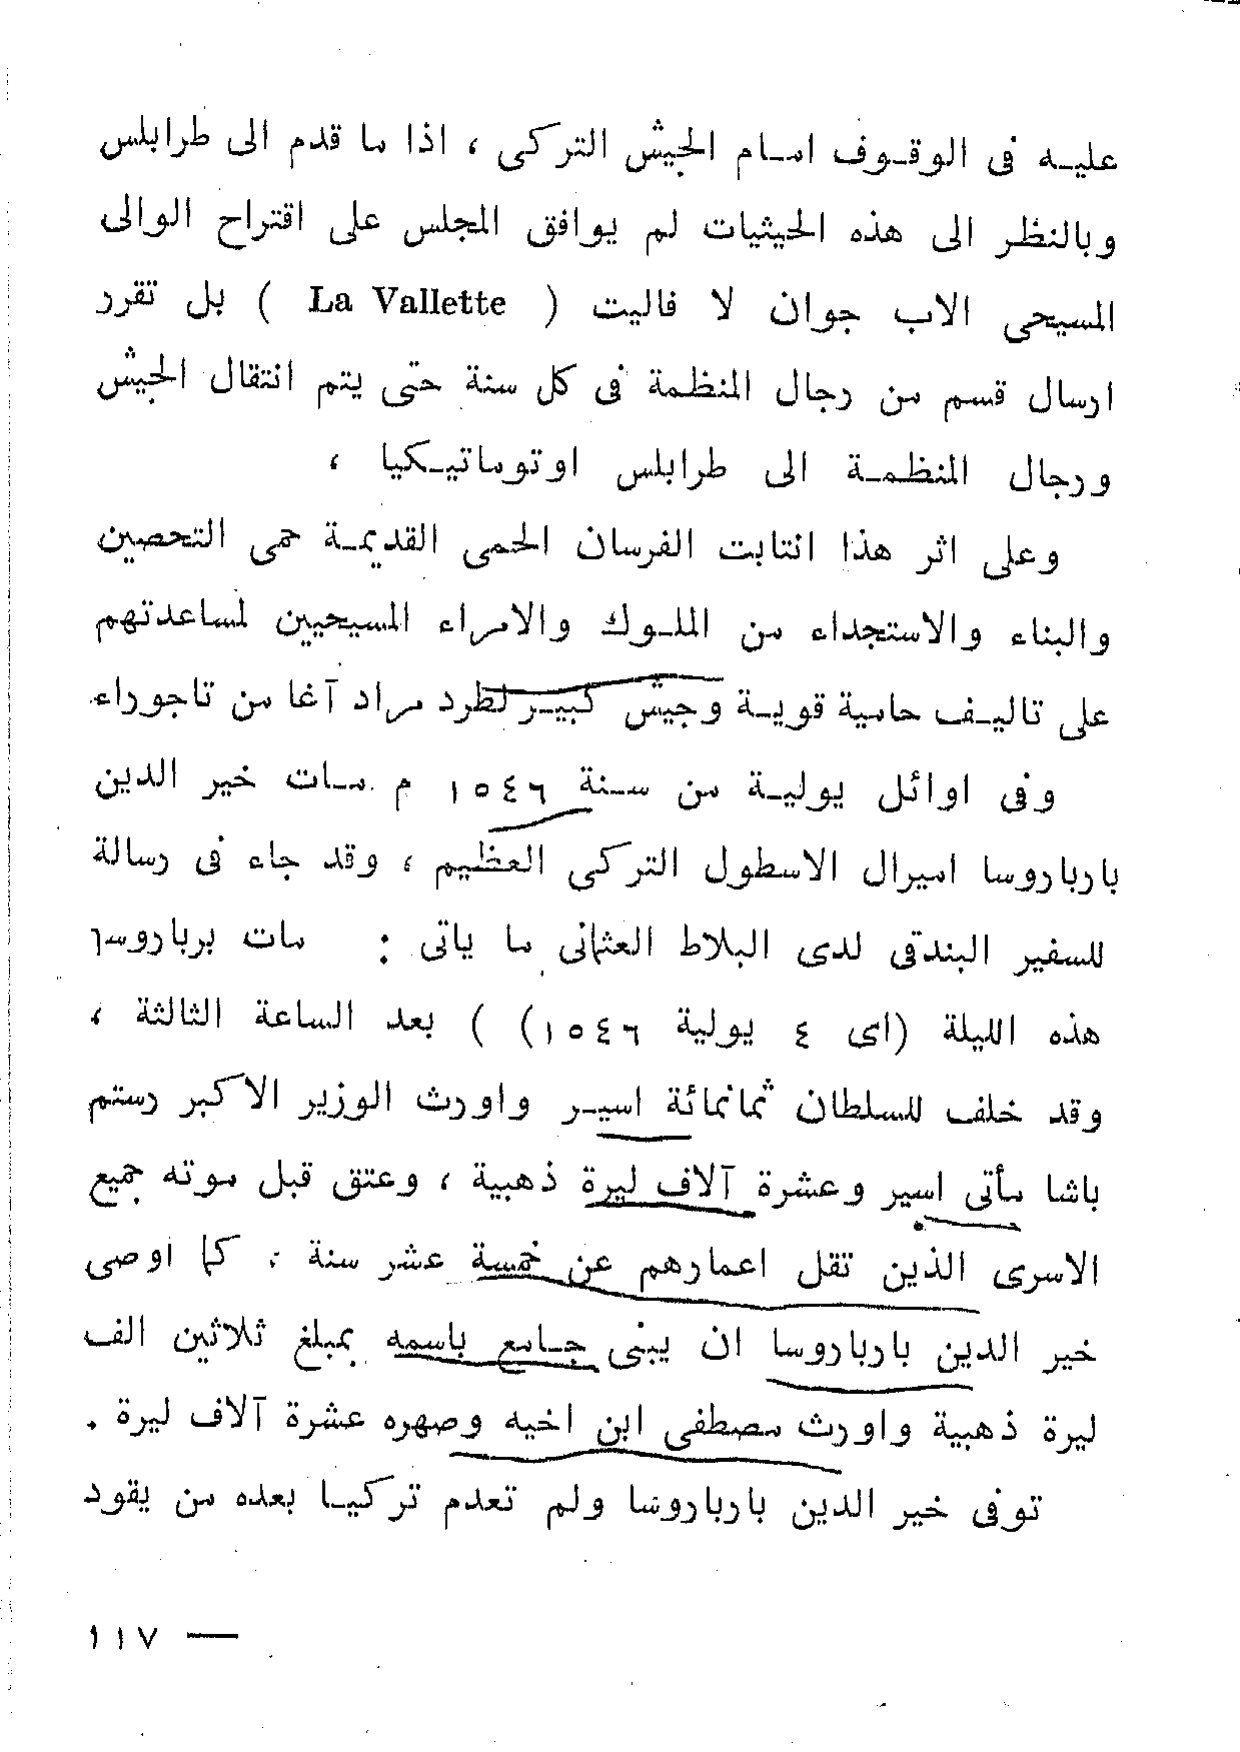 عليـه فى الوقـوف امـام الجيش التركى ، اذا ما قدم الى طرابلس
وبالنظر الى هذه الحيثيات لم يوافق المجلس على اقتراح الوالى
المسيحى الاب جوان لا فاليت ( La Vallette ) بل تقرر
ارسال قسم من رجال المنظمة فى كل سنة حتى يتم انتقال الجيش
ورجال المنظمـة الى طرابلس اوتوماتيـكيا ،
وعلى اثر هذا انتابت الفرسان الحمى القديمـة حمى التحصين
والبناء والاستجداء من الملـوك والامراء المسيحيين لمساعدتهم
على تاليـف حامية قويـة وجيش كبيـر لطرد مراد آغا من تاجوراء
وفى اوائل يوليـة من سـنة ١٥٤٦ م مـات خير الدين
بارباروسا اميرال الاسطول التركى العظيم ، وقد جاء فى رسالة
للسفير البندقى لدى البلاط العثمانى ما ياتى : مات برباروسـا
هذه الليلة (اى ٤ يولية ١٥٤٦) ) بعد الساعة الثالثة ،
وقد خلف للسلطان ثمانمائة اسيـر واورث الوزير الاكبر رستم
باشا مأتى اسير وعشرة آلاف ليرة ذهبية ، وعتق قبل موته جميع
الاسرى الذين تقل اعمارهم عن خمسة عشر سنة . كما اوصى
خير الدين بارباروسا ان يبنى جـامع باسمه بمبلغ ثلاثين الف
ليرة ذهبية واورث مصطفى ابن اخيه وصهره عشرة آلاف ليرة .
توفى خير الدين بارباروسا ولم تعدم تركيـا بعده من يقود
١١٧ —